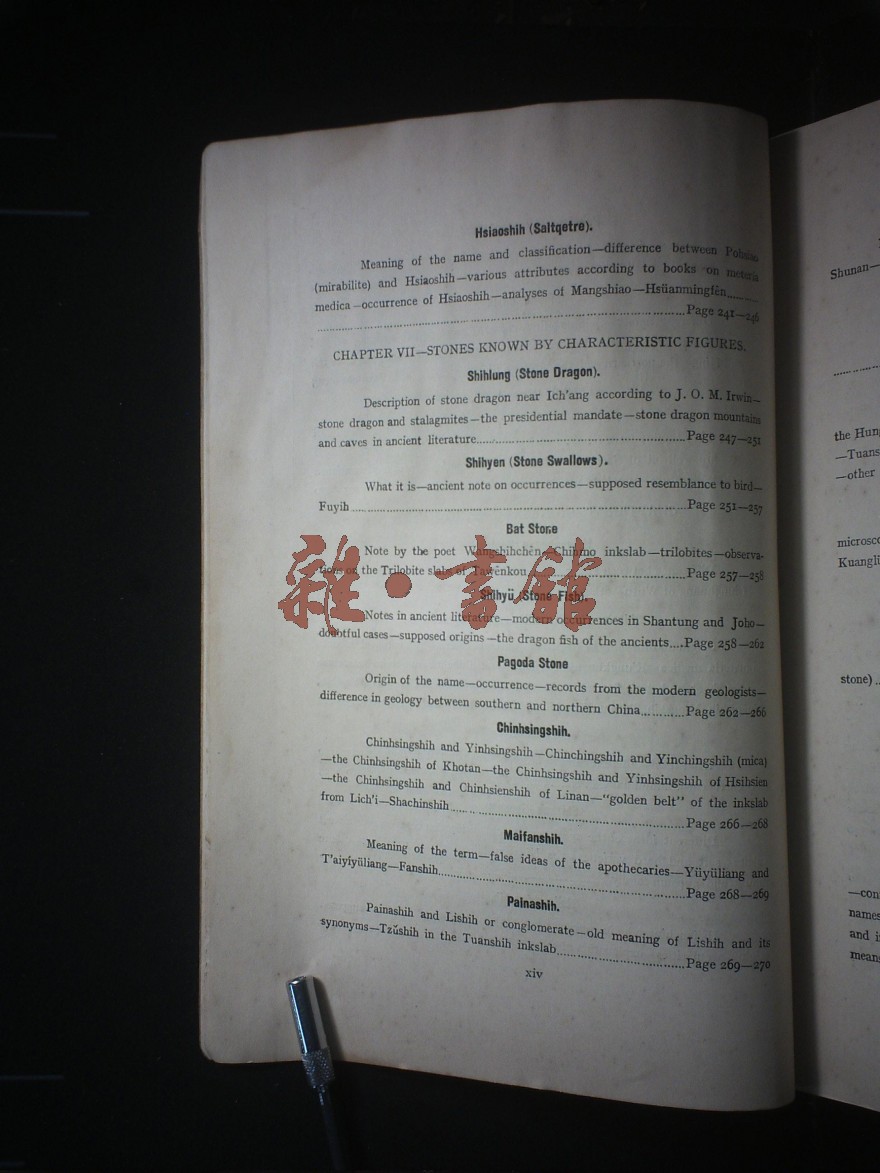 Hsiaoshih (Saltqetre).
Meaning of the name and classification—difference between
(mirabilite) and Hsiaoshih—various attributes according to books on materia
medica—occurrence of Hsiaoshih—analyses of Mangshiao—Hsüanmingfên........
........Page 241—246
CHAPTER VII—STONES KNOWN BY CHARACTERISTIC FIGURES.
Shihlung (Stone Dragon).
Description of stone dragon near Ich'ang according to J. O. M. Irwin—
stone dragon and stalagmites—the presidential mandate—stone dragon mountains
and caves in ancient literature........Page 247—251
Shihyen (Stone Swallows).
What it is—ancient note on occurrences—supposed resemblance to bird—
Fuyih........Page 251—257
Bat Stone
Note by the poet Wangshihchên—Chihmo inkslab—trilobites—observa-
tions on the Trilobite slabs of Tawênkou........Page 257—258
Shihyü (Stone Fish).
Notes in ancient literature—modern occurrences in Shantung and Joho—
doubtful cases—supposed origins—the dragon fish of the ancients....Page 258—262
Pagoda Stone
Origin of the name—occurrence—records from the modern geologists—
difference in geology between southern and northern China............Page 262—266
Chinhsingshih.
Chinhsingshih and Yinhsingshih—Chinchingshih and Yinchingshih (mica)
—the Chinhsingshih of Khotan—the Chinhsingshih and Yinhsingshih of Hsihsien
—the Chinhsingshih and Chinhsienshih of Linan—"golden belt" of the inkslab
from Lich'i—Shachinshih........Page 266—268
Maifanshih.
Meaning of the term—false ideas of the apothecaries—Yüyüliang and
T'aiyiyüliang—Fanshih........Page 268—269
Painashih.
Painashih and Lishih or conglomerate—old meaning of Lishih and its
synonyms—Tzŭshih in the Tuanshih inkslab........Page 269—270
xiv
雜·書館
Shunan—
the Hung
—Tuans
—other
microsco
Kuangli
stone)..
—con
names
and i
means